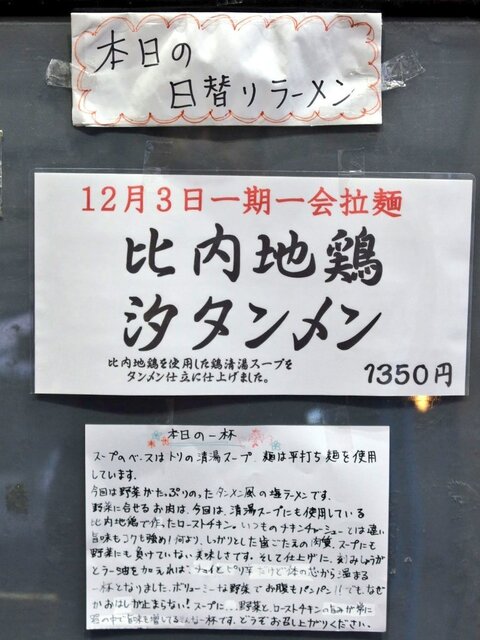 本日の
日替りラーメン
12月3日一期一会拉麺
比内地鶏
汐タンメン
比内地鶏を使用した鶏清湯スープを
タンメン仕立に仕上げました。
1350円
本日の一杯
スープのベースはトリの清湯スープ。麺は平打ち麺を使用
しています。
今回は野菜がたっぷりのったタンメン風の塩ラーメンです。
野菜に合せるお肉は、今回は、清湯スープにも使用している
比内地鶏で作ったローストチキン。いつものチキンチャーシューとは違い
旨味もコクも強め!何より、しっかりとした歯ごたえの肉質、スープにも
野菜にも負けていない美味しさです。そして仕上げに、刻みしょうが
とラー油を加えれば、チョイとピリ辛だけど体の芯から温まる
一杯となりました。ボリューミーな野菜でお腹もパンパン!!でも、なぜ
かおはしが止まらない!スープに、野菜と、ローストチキンの旨みが常に
口の中で旨味を増してる 一杯です。どうぞお召し上がりください。